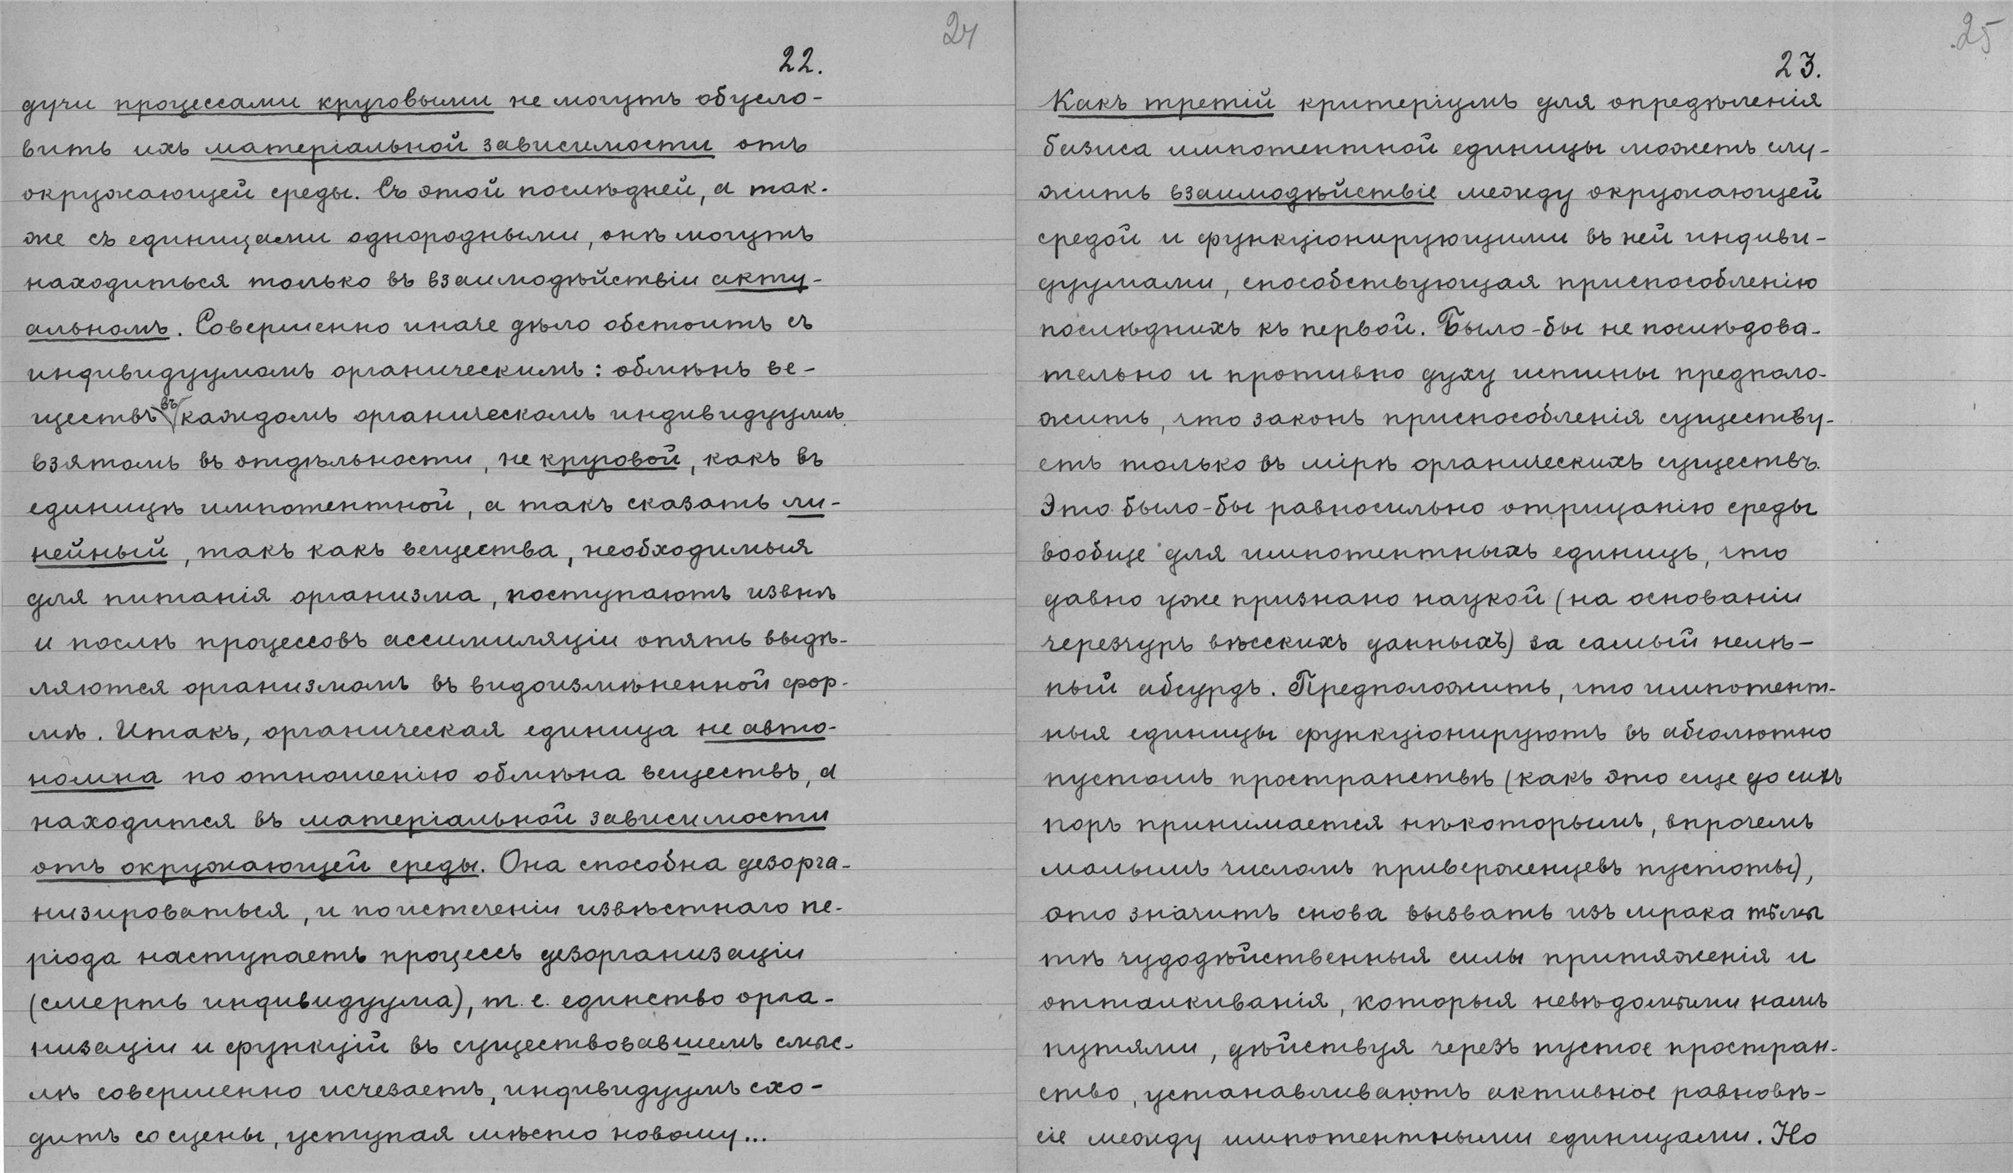 24
22.
дучи процессами круговыми не могутъ обусло-
вить ихъ матеріальной зависимости отъ
окружающей среды. Съ этой послѣдней, а так-
же съ единицами однородными, онѣ могутъ
находиться только въ взаимодѣйствіи акту-
альномъ. Совершенно иначе дѣло обстоитъ съ
индивидуумомъ органическимъ: обмѣнъ ве-
ществъ въ каждомъ органическомъ индивидуумѣ,
взятомъ въ отдѣльности, не круговой, какъ въ
единицѣ импотентной, а такъ сказать ли-
нейный, такъ какъ вещества, необходимыя
для питанія организма, поступаютъ извнѣ
и послѣ процессовъ ассимиляціи опять выдѣ-
ляются организмомъ въ видоизмѣненной фор-
мѣ. Итакъ, органическая единица не авто-
номна по отношенію обмѣна веществъ, а
находится въ матеріальной зависимости
отъ окружающей среды. Она способна дезорга-
низироваться, и по истеченіи извѣстнаго пе-
ріода наступаетъ процессъ дезорганизаціи
(смерть индивидуума), т. е. единство орга-
низаціи и функцій въ существовавшемъ смыс-
лѣ совершенно исчезаетъ, индивидуумъ схо-
дитъ со сцены, уступая мѣсто новому...
25
23.
Какъ третій критеріумъ для опредѣленія
базиса импотентной единицы можетъ слу-
жить взаимодѣйствіе между окружающей
средой и функціонирующими въ ней индиви-
дуумами, способствующая приспособленію
послѣднихъ къ первой. Было-бы не послѣдова-
тельно и противно духу истины предполо-
жить, что законъ приспособленія существу-
етъ только въ мірѣ органическихъ существъ.
Это было-бы равносильно отрицанію среды
вообще для импотентныхъ единицъ, что
давно уже признано наукой (на основаніи
черезчуръ вѣсскихъ данныхъ) за самый нелѣ-
пый абсурдъ. Предположить, что импотент-
ныя единицы функціонируютъ въ абсолютно
пустомъ пространствѣ (какъ это еще до сихъ
поръ принимается нѣкоторымъ, впрочемъ
малымъ числомъ приверженцевъ пустоты),
это значитъ снова вызвать изъ мрака тьмы
тѣ чудодѣйственныя силы притяженія и
отталкиванія, которыя невѣдомыми намъ
путями, дѣйствуя черезъ пустое простран-
ство, устанавливаютъ активное равновѣ-
сіе между импотентными единицами. Но